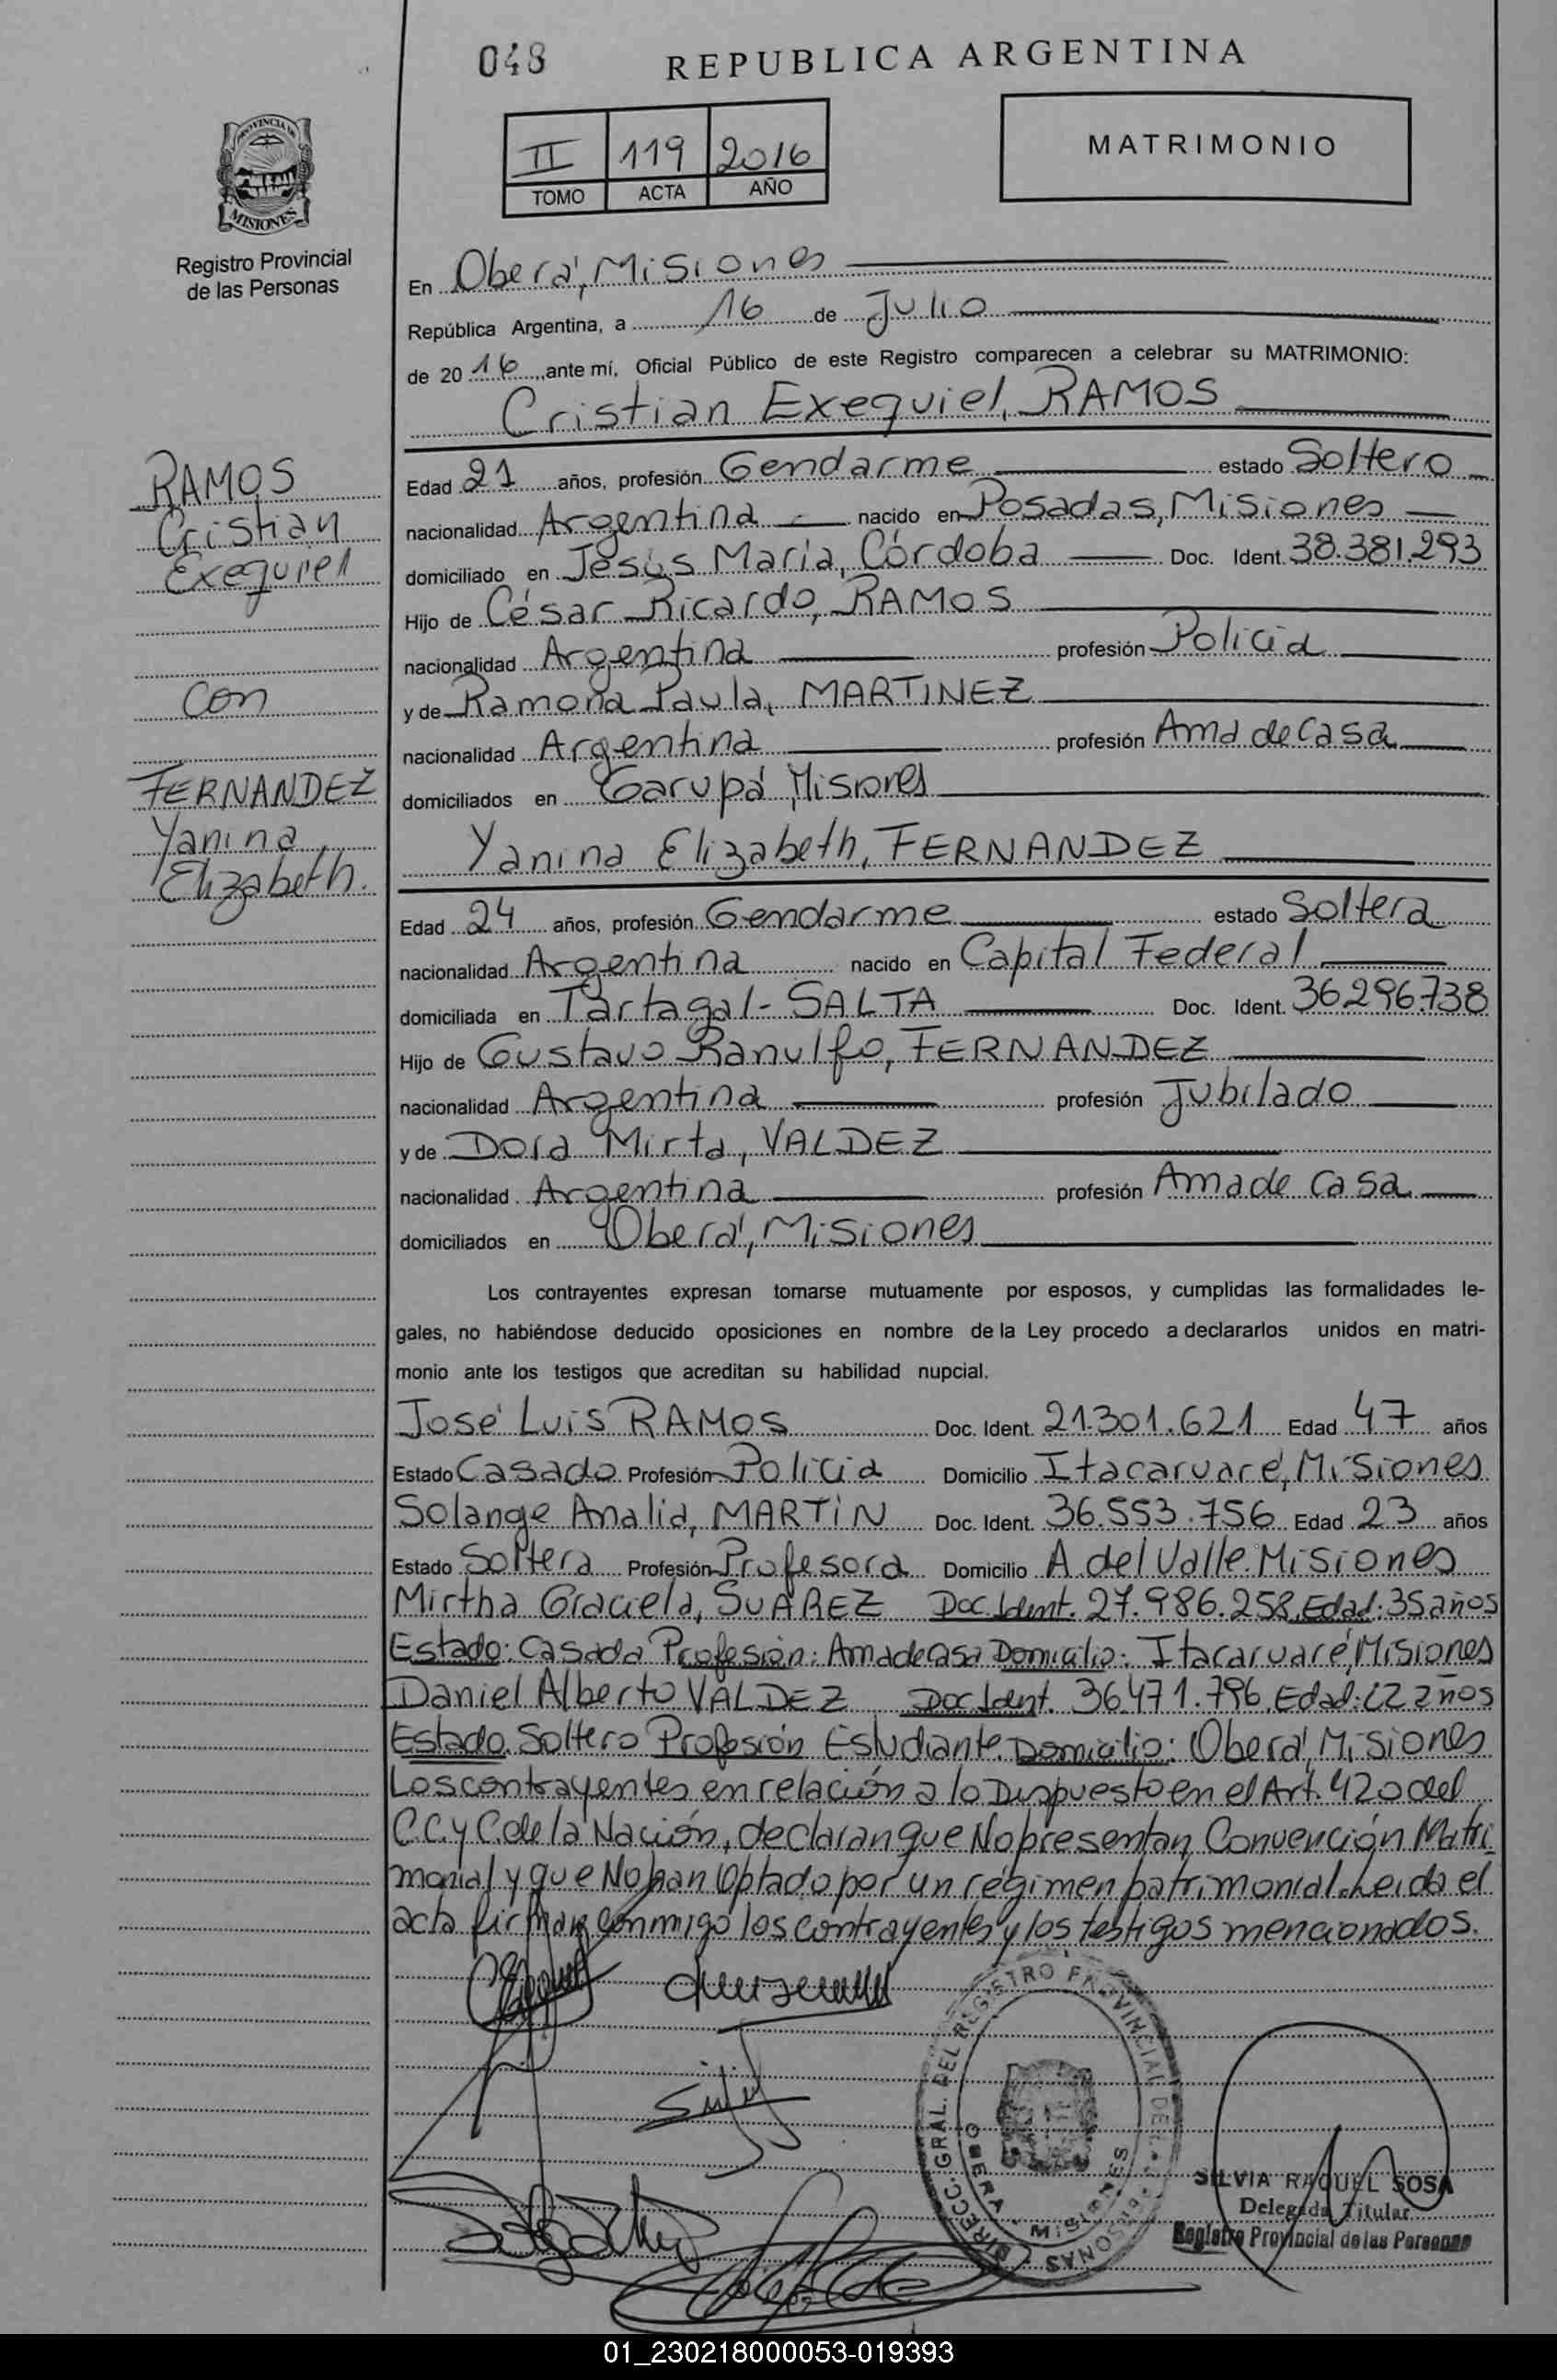 048
REPUBLICA ARGENTINA
PROVINCIA DE
MISIONES
Registro Provincial
de las Personas
II 119 2016
TOMO ACTA AÑO
MATRIMONIO
En Oberá, Misiones
República Argentina, a 16 de Julio
de 2016, ante mí, Oficial Público de este Registro comparecen a celebrar su MATRIMONIO:
Cristian Exequiel, RAMOS
RAMOS
Cristian
Exequiel
con
FERNANDEZ
Yanina
Elizabeth.
Edad 21 años, profesión Gendarme estado Soltero
nacionalidad Argentina nacido en Posadas, Misiones
domiciliado en Jesús María, Córdoba Doc. Ident. 38.381.293
Hijo de César Ricardo, RAMOS
nacionalidad Argentina profesión Policia
y de Ramona Paula, MARTINEZ
nacionalidad Argentina profesión Ama de casa
domiciliados en Garupá Misiones
Yanina Elizabeth, FERNANDEZ
Edad 24 años, profesión Gendarme estado Soltera
nacionalidad Argentina nacido en Capital Federal
domiciliada en Tartagal - SALTA Doc. Ident. 36.296.738
Hijo de Gustavo Ranulfo, FERNANDEZ
nacionalidad Argentina profesión Jubilado
y de Dora Mirta, VALDEZ
nacionalidad Argentina profesión Ama de casa
domiciliados en Oberá, Misiones
Los contrayentes expresan tomarse mutuamente por esposos, y cumplidas las formalidades le-
gales, no habiéndose deducido oposiciones en nombre de la Ley procedo a declararlos unidos en matri-
monio ante los testigos que acreditan su habilidad nupcial.
José Luis RAMOS Doc. Ident. 21.301.621 Edad 47 años
Estado Casado Profesión Policia Domicilio Itacaruaré, Misiones
Solange Analia, MARTIN Doc. Ident. 36.553.756 Edad 23 años
Estado Soltera Profesión Profesora Domicilio A. del Valle. Misiones
Mirtha Graciela, SUAREZ Doc. Ident. 27.986.258, Edad: 35 años
Estado: Casada Profesión: Ama de casa Domicilio: Itacaruaré, Misiones
Daniel Alberto VALDEZ Doc. Ident. 36.471.796, Edad: años
Estado. Soltero Profesión Estudiante. Domicilio: Oberá, Misiones
Los contrayentes en relación a lo Dispuesto en el Art. 420 del
C.C.y C. de la Nación, declaran que No presentan Convención Matri-
monial y que No han Optado por un régimen patrimonial. Leida el
acta firman conmigo los contrayentes y los testigos mencionados.
DIRECC. GRAL. DEL REGISTRO PROVINCIAL DE PERSONAS
OBERA MISIONES
SILVIA RAQUEL SOSA
Delegada Titular
Registro Provincial de las Personas
01_230218000053-019393